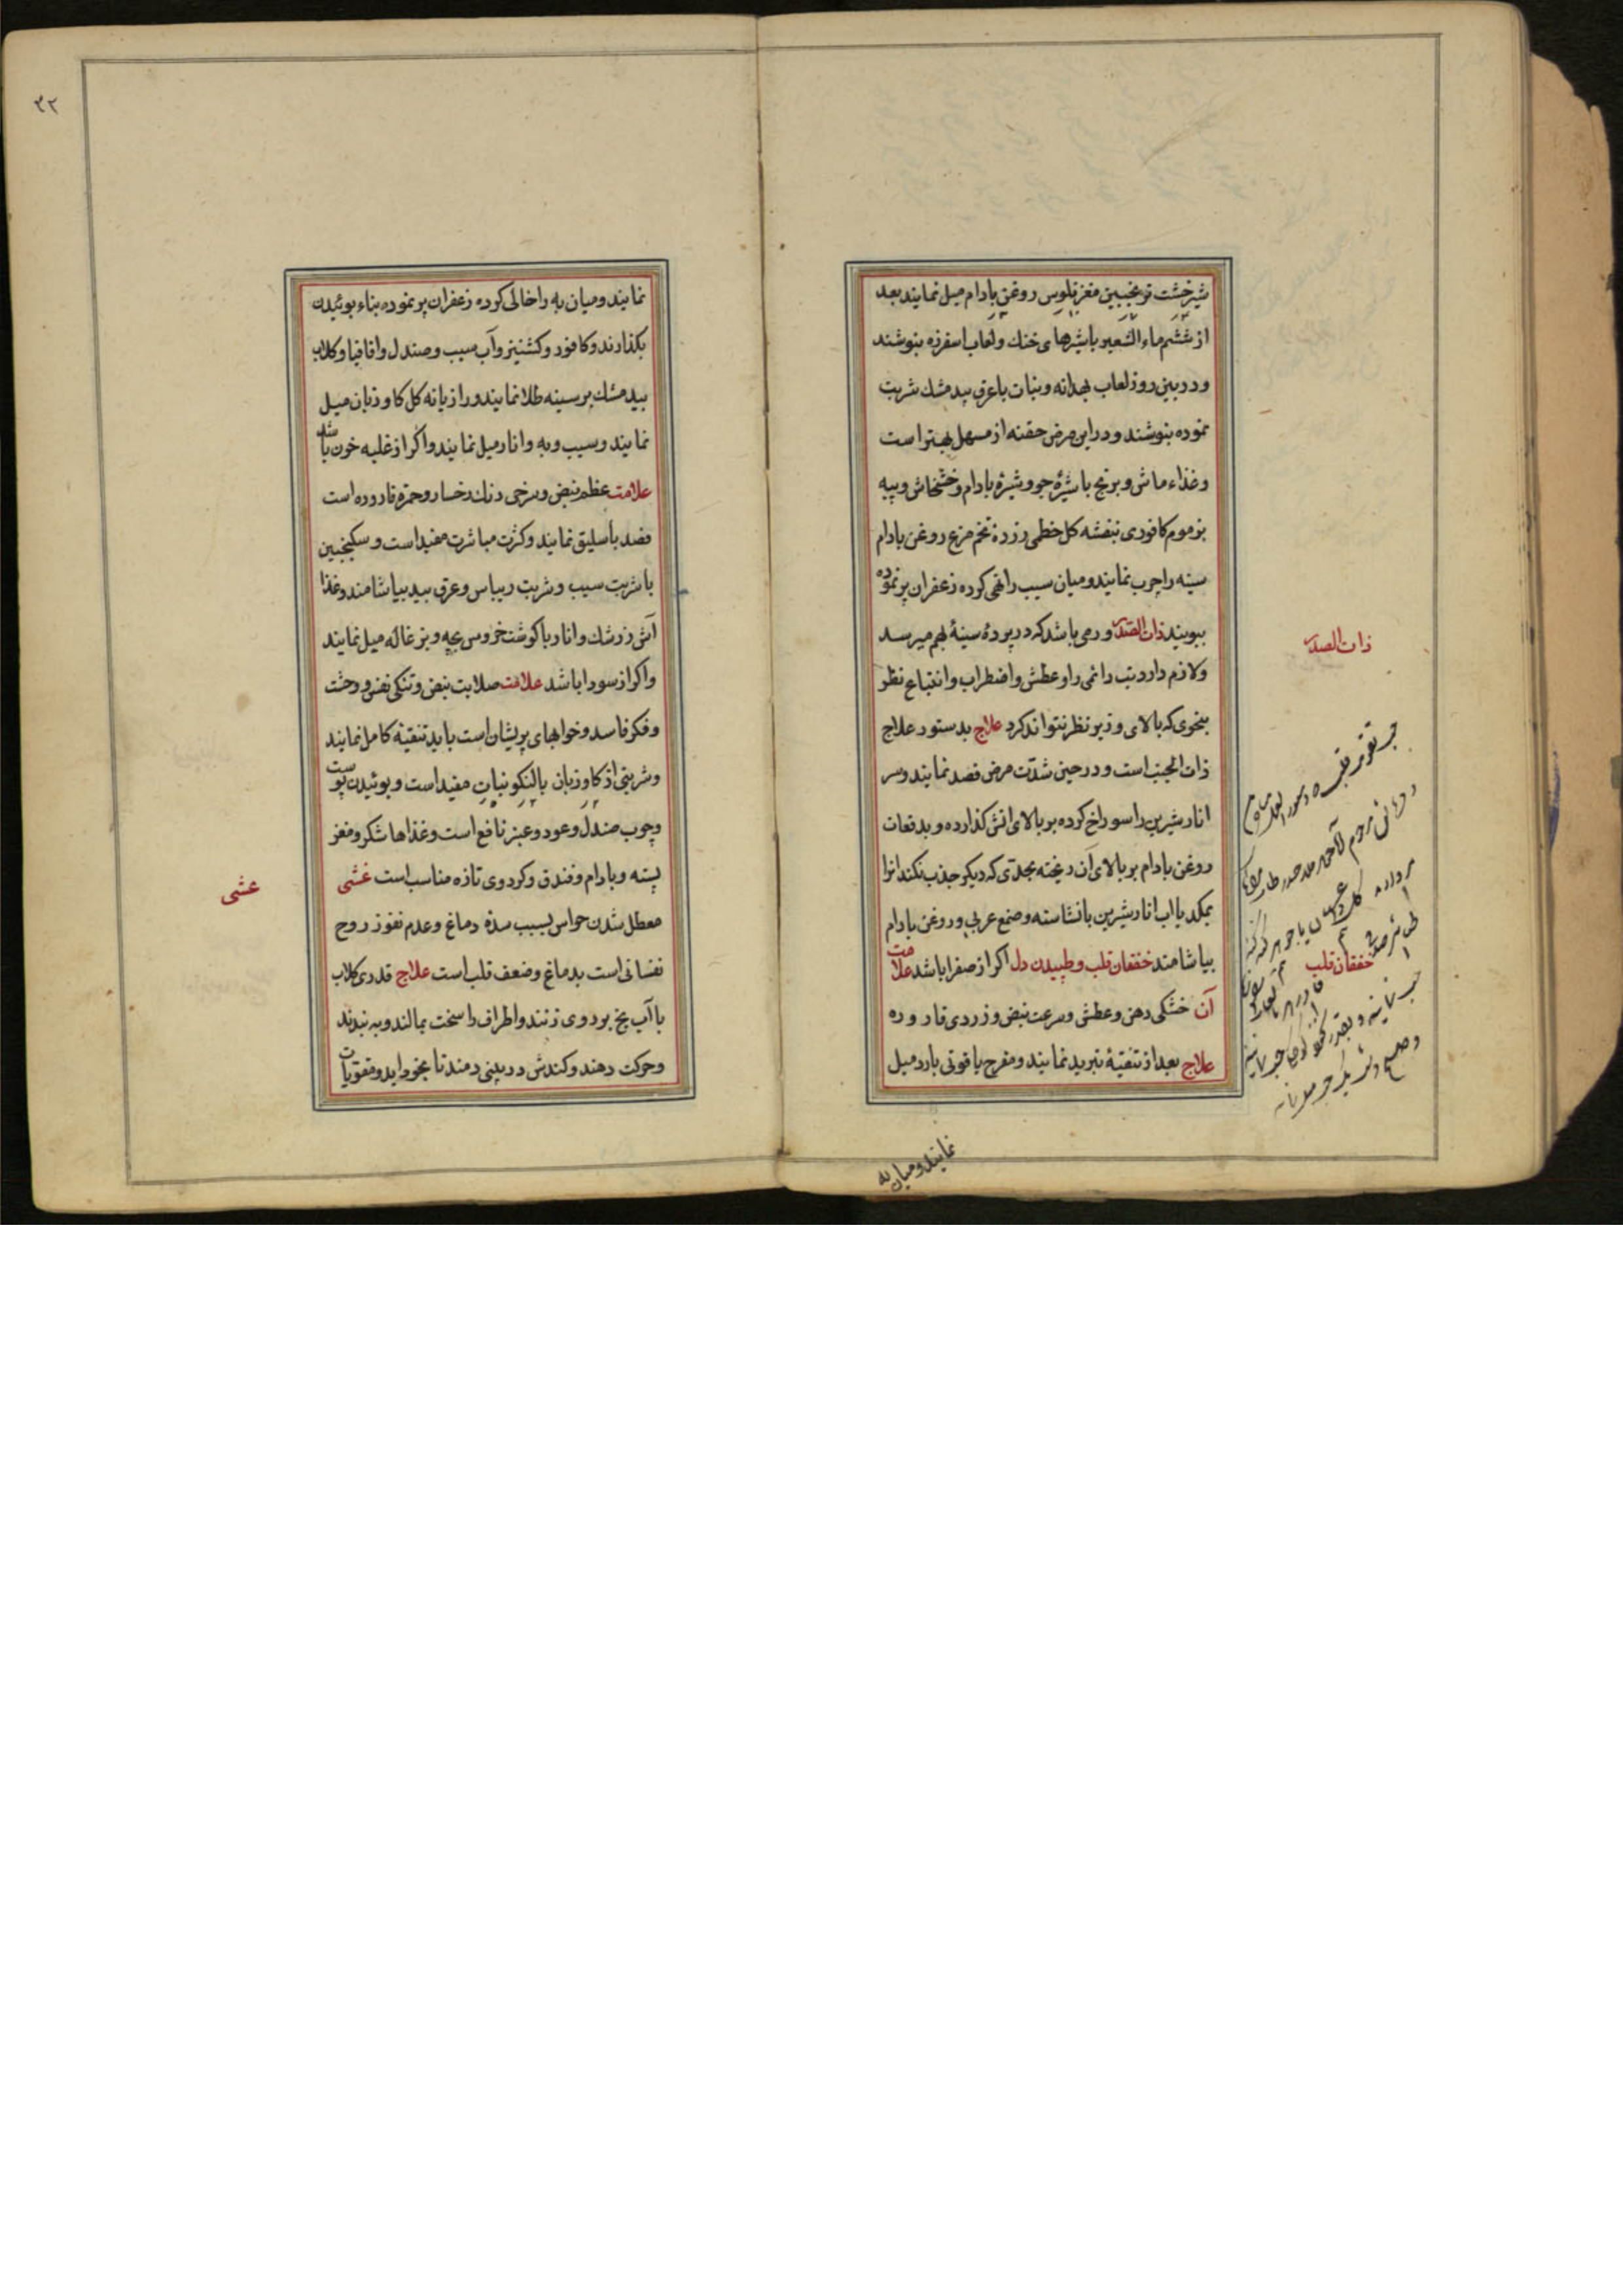 شیرخشت ترنجبین مغز فلوس روغن بادام میل نمایند بعد
از ششم ماء الشعیر باشیرهای خنك ولعاب اسفرزه بنوشند
ودر بین روز لعاب بهدانه ونبات باعرق بیدمشك شربت
نموده بنوشند ودر این مرض حقنه از مسهل بهتر است
وغذاء ماش وبرنج باشیرۀ جو وشیرۀ بادام وخشخاش وپیه
بز موم کافوری بنفشه کل خطمی زرده تخم مرغ روغن بادام
سینه را چرب نمایند ومیان سیب را تهی کرده زعفران پر نموده
ببویند ذات الصدر ورمی باشد که در پردۀ سینۀ بهم میرسد
ولازم دارد تب دائمی را وعطش واضطراب وانقباع نظر
بنحوی که بالای وزیر نظر نتواند کرد علاج بدستور علاج
ذات الجنب است ودر حین شدّت مرض فصد نمایند وسر
انار شیرین را سوراخ کرده بر بالای اتش کذارده وبدفعات
روغن بادام بر بالای آن ریخته بحدّی که دیکر جذب نکند انرا
بمکد یا اب انار شیرین بانشاسته وصمغ عربی وروغن بادام
بیاشامند خفقان قلب وطپیدن دل اکر از صفرا باشد علامت
آن خشکی دهن وعطش وسرعت نبض وزردی قاروره
علاج بعد از تنقیۀ تبرید نمایند ومفرح یاقوتی بارد میل
نمایند ومیان به
ذات الصدر
خفقان قلب
٣٢
نمایند ومیان به را خالی کرده زعفران پر نموده بناء بوئیدن
بکذارند وکافور وکشنیز وآب سیب وصندل واقاقیا وکلاب
بیدمشك بر سینه طلا نمایند ورازیانه کل کاوزبان میل
نمایند وسیب وبه وانار میل نمایند واکر از غلبه خون باشد
علامت عظم نبض وسرخی رنك رخسار وحمرة قاروره است
فصد باسلیق نمایند وکثرت مباشرت مفید است وسکنجبین
باشربت سیب وشربت ریباس وعرق بید بیاشامند وغذا
آش زرشك وانار با کوشت خروس بچه وبزغاله میل نمایند
واکر از سودا باشد علامت صلابت نبض وتنکی نفس ووحشت
وفکر فاسد وخوابهای پریشان است باید تنقیۀ کامل نمایند
وشربتی از کاوزبان بالنکو نبات مفید است وبوئیدن پوست
وچوب صندل وعود وعنبر نافع است وغذاها شکر ومغز
پسته وبادام وفندق وکردوی تازه مناسب است غشی
معطل شدن حواس بسبب سده دماغ وعدم نفوذ روح
نفسانی است بدماغ وضعف قلب است علاج قدری کلاب
با آب یخ بر روی زنند واطراف را سخت بمالند وبه بندند
وحرکت دهند وکندش در بینی دمند تا بخود اید ومقویات
غشی